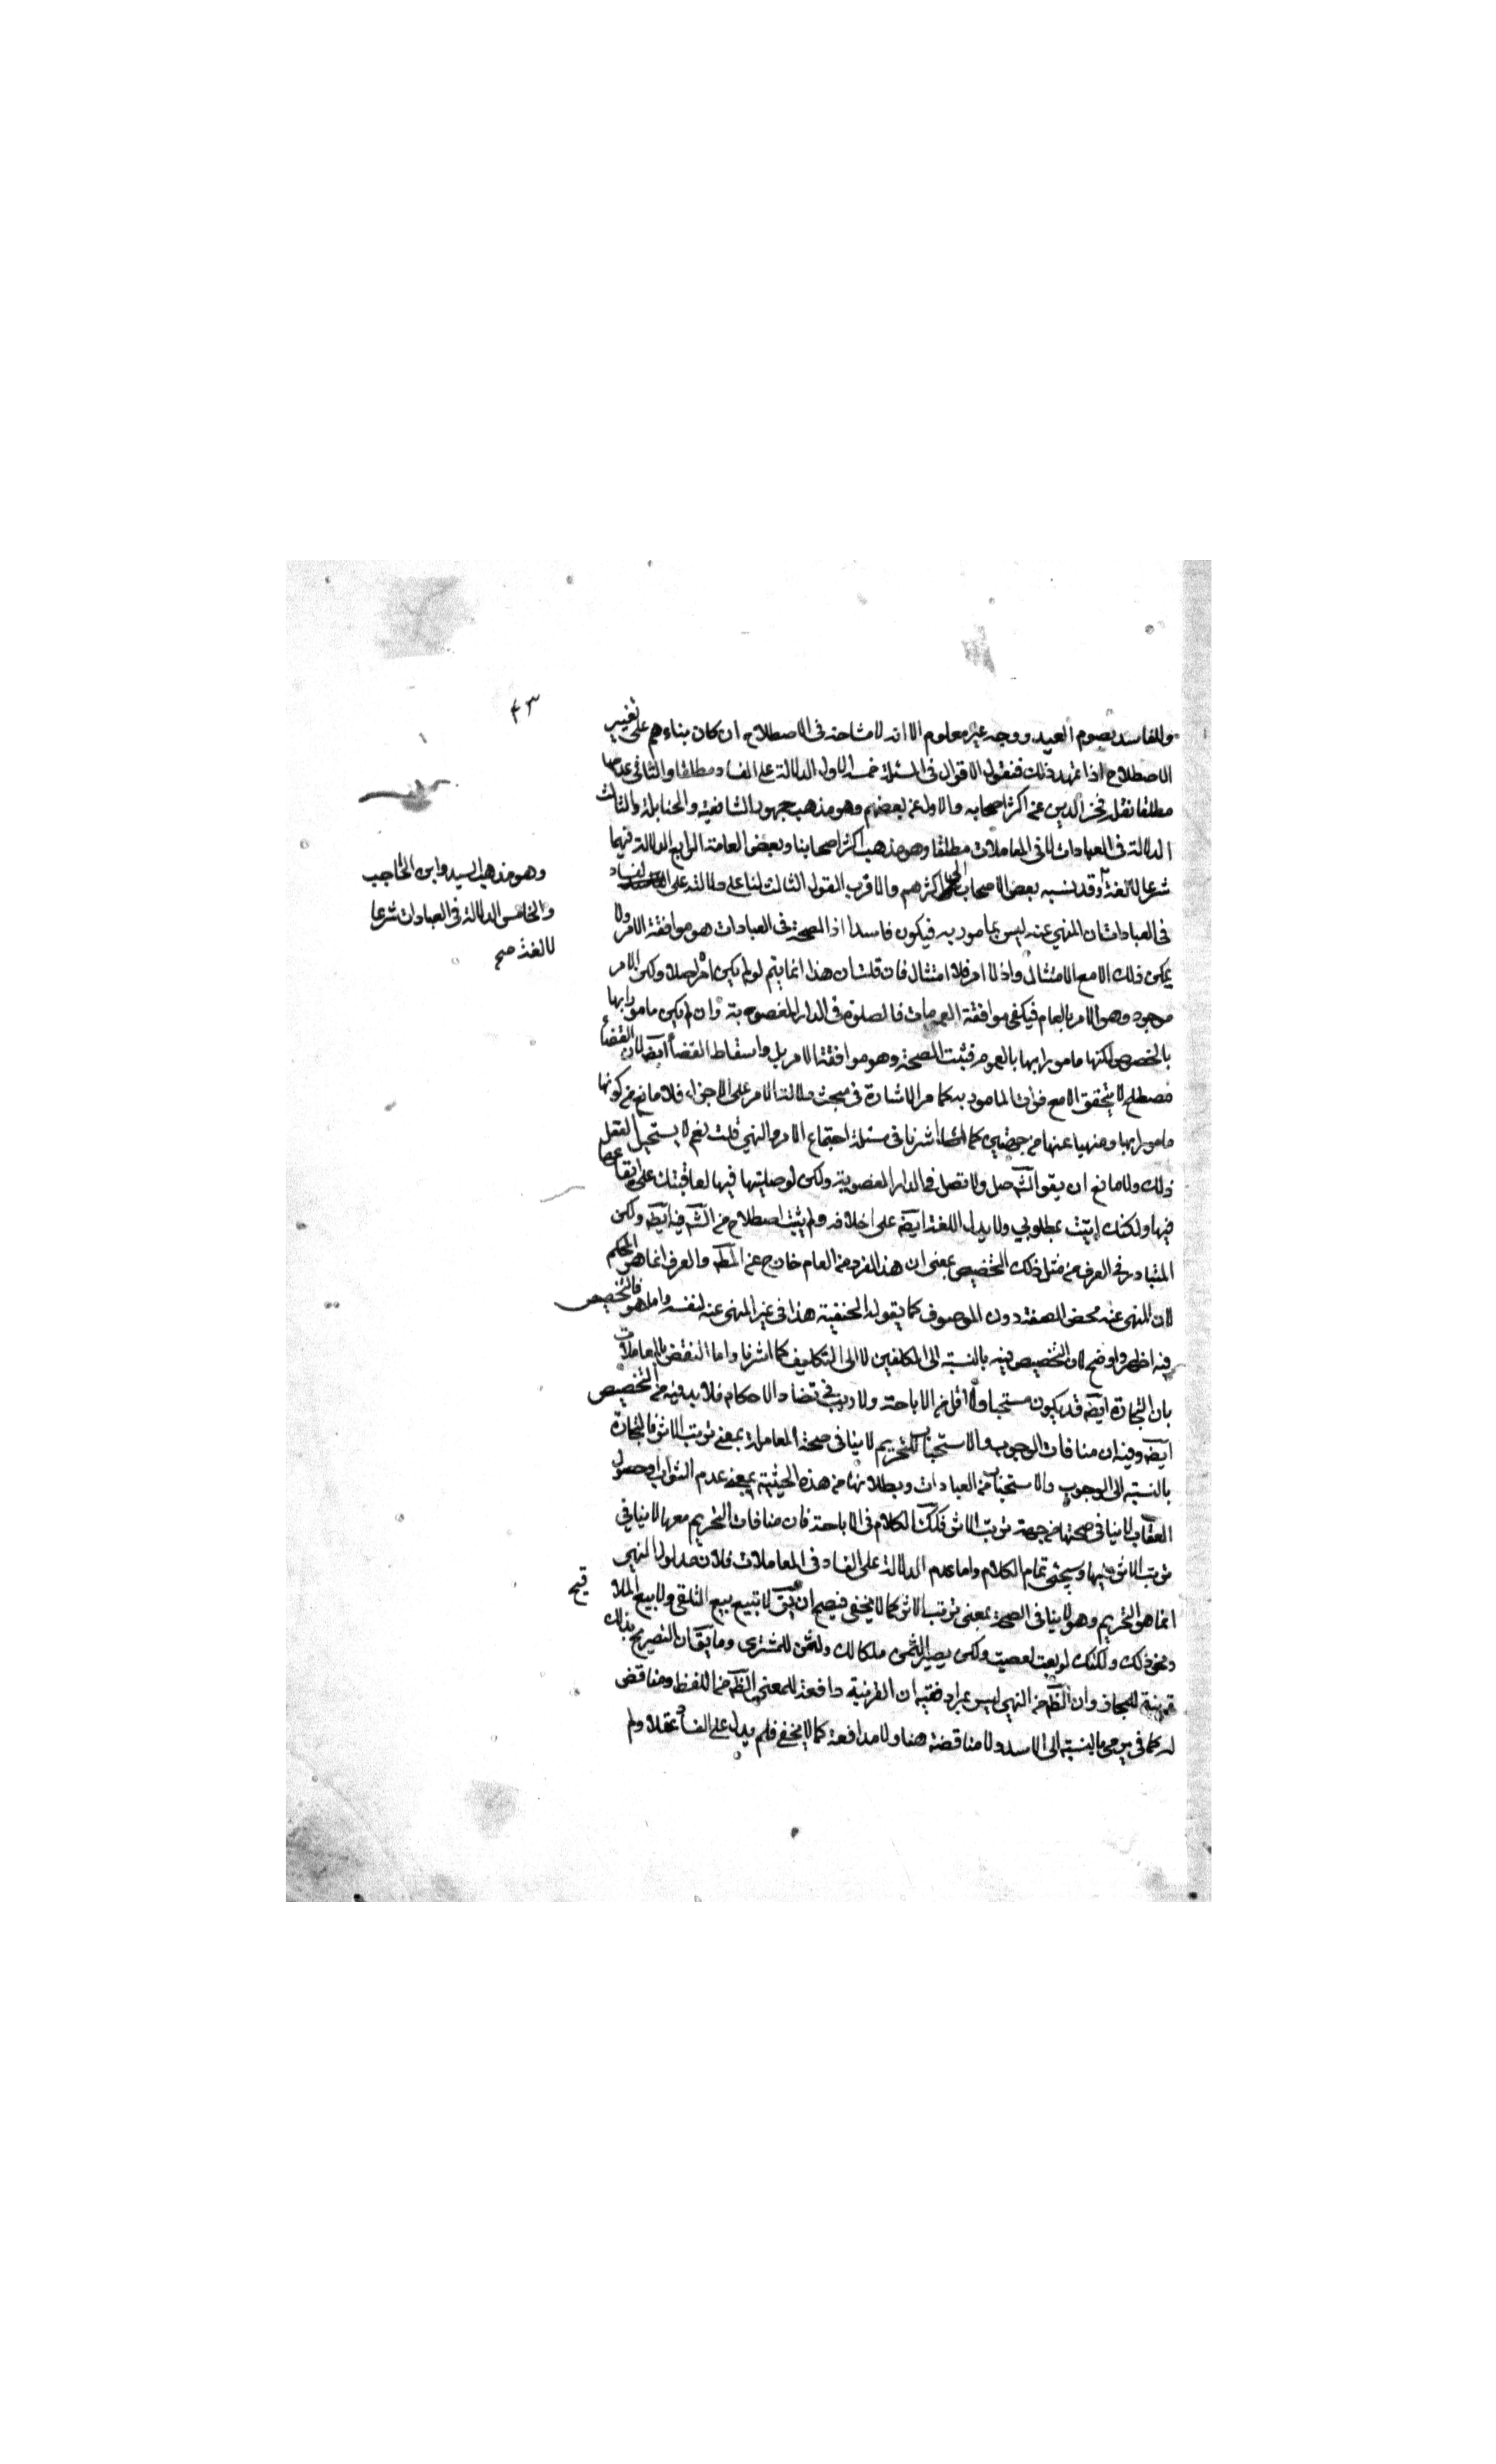 ٤٣
وللفاسد بصوم العيد ووجهه غير معلوم الا انه لا مشاحة فى الاصطلاح ان كان بناءهم على تغيير
الاصطلاح اذا تمهد ذلك فنقول الاقوال فى المسئلة خمسة الاول الدلالة على الفساد مطلقا والثانى عدمها
مطلقا نقله فخر الدين عن اكثر اصحابه والاول عن بعضهم وهو مذهب جمهور الشافعية والحنابلة والثالث
الدلالة فى العبادات لا فى المعاملات مطلقا وهو مذهب اكثر اصحابنا وبعض العامة الرابع الدلالة فيهما
شرعا لا لغة وقد نسبه بعض الاصحاب الى اكثرهم والاقرب القول الثالث لنا على دلالته على الفساد
فى العبادات ان المنهي عنه ليس بمامور به فيكون فاسدا اذ الصحة فى العبادات هو موافقة الامر ولا
يمكن ذلك الا مع الامتثال واذ لا امر فلا امتثال فان قلت ان هذا انما يتم لو لم يكن امر اصلا ولكن الامر
موجود وهو الامر بالعام فيكفى موافقة العمومات فالصلوة فى الدار المغصوبة وان لم يكن مامورا بها
بالخصوص لكنها مامورا بها بالعموم فثبت الصحة وهو موافقة الامر بل واسقاط القضاء ايضه لان القضاء
مصطلح لا يتحقق الا مع فوات المامور به كما مر الاشارة فى مبحث دلالة الامر على الاجزاء فلا مانع من كونها
مامورا بها ومنهيا عنها من جهتين كما اشرنا فى مسئلة اجتماع الامر والنهي قلت نعم لا يستحيل العقل
ذلك ولا مانع ان يقول الشه صل ولا تصل فى الدار المغصوبة ولكن لو صليتها فيها لعاقبتك على ايقاعها
فيها ولكنك اتيت بمطلوبي ولا يدل اللغة ايضه على خلافه ولم يثبت اصطلاح من الشه فيه ايضه ولكن
المتبادر فى العرف من مثل ذلك التخصيص بمعنى ان هذا الفرد من العام خارج عن المط والعرف انما هو المحكم
لان المنهى عنه محض الصفة دون الموصوف كما يقوله الحنفية هذا فى غير المنهى عنه لنفسه واما هو فالتخصيص
فيه اظهر واوضح لان التخصيص فيه بالنسبة الى المكلفين لا الى التكليف كما اشرنا واما النقض بالمعاملات
بان التجارة ايضه قد يكون مستحبا ولا اقل من الاباحة ولا ريب فى تضاد الاحكام فلا بد فيه من التخصيص
ايضه وفيه ان منافات الوجوب والاستحباب للتحريم لا ينافى صحة المعاملة بمعنى ترتب الاثر فالتجارة
بالنسبة الى الوجوب والاستحباب من العبادات وبطلانها من هذه الحيثية بمعنى عدم الثواب او حصول
العقاب لا ينافى صحتها من جهة ترتب الاثر فكك الكلام فى الاباحة فان منافات التحريم معها لا ينافي
ترتب الاثر عليها وسيجئ تمام الكلام واما عدم الدلالة على الفساد فى المعاملات فلان مدلول النهي
انما هو التحريم وهو لا ينافى الصحة بمعنى ترتب الاثر كما لا يخفى فيصح ان يق لا تبيع بيع التلقى ولا بيع الملا
قيح
ونحو ذلك ولكنك لو بعت لعصيت ولكن يصير الثمن ملكا لك والمثمن للمشترى وما يق ان التصريح بذلك
قرينة للمجاز وان الظ من النهي ليس بمراد ففيه ان القرينة دافعة للمعنى الظ من اللفظ ومناقض
له كما فى يرمى بالنسبة الى الاسد ولا مناقضة هنا ولا مدافعة كما لا يخفى فلم يدل على الفساد عقلا ولم
وهو مذهب السيد وابن الحاجب
والخامس الدلالة فى العبادات شرعا
لا لغة صح